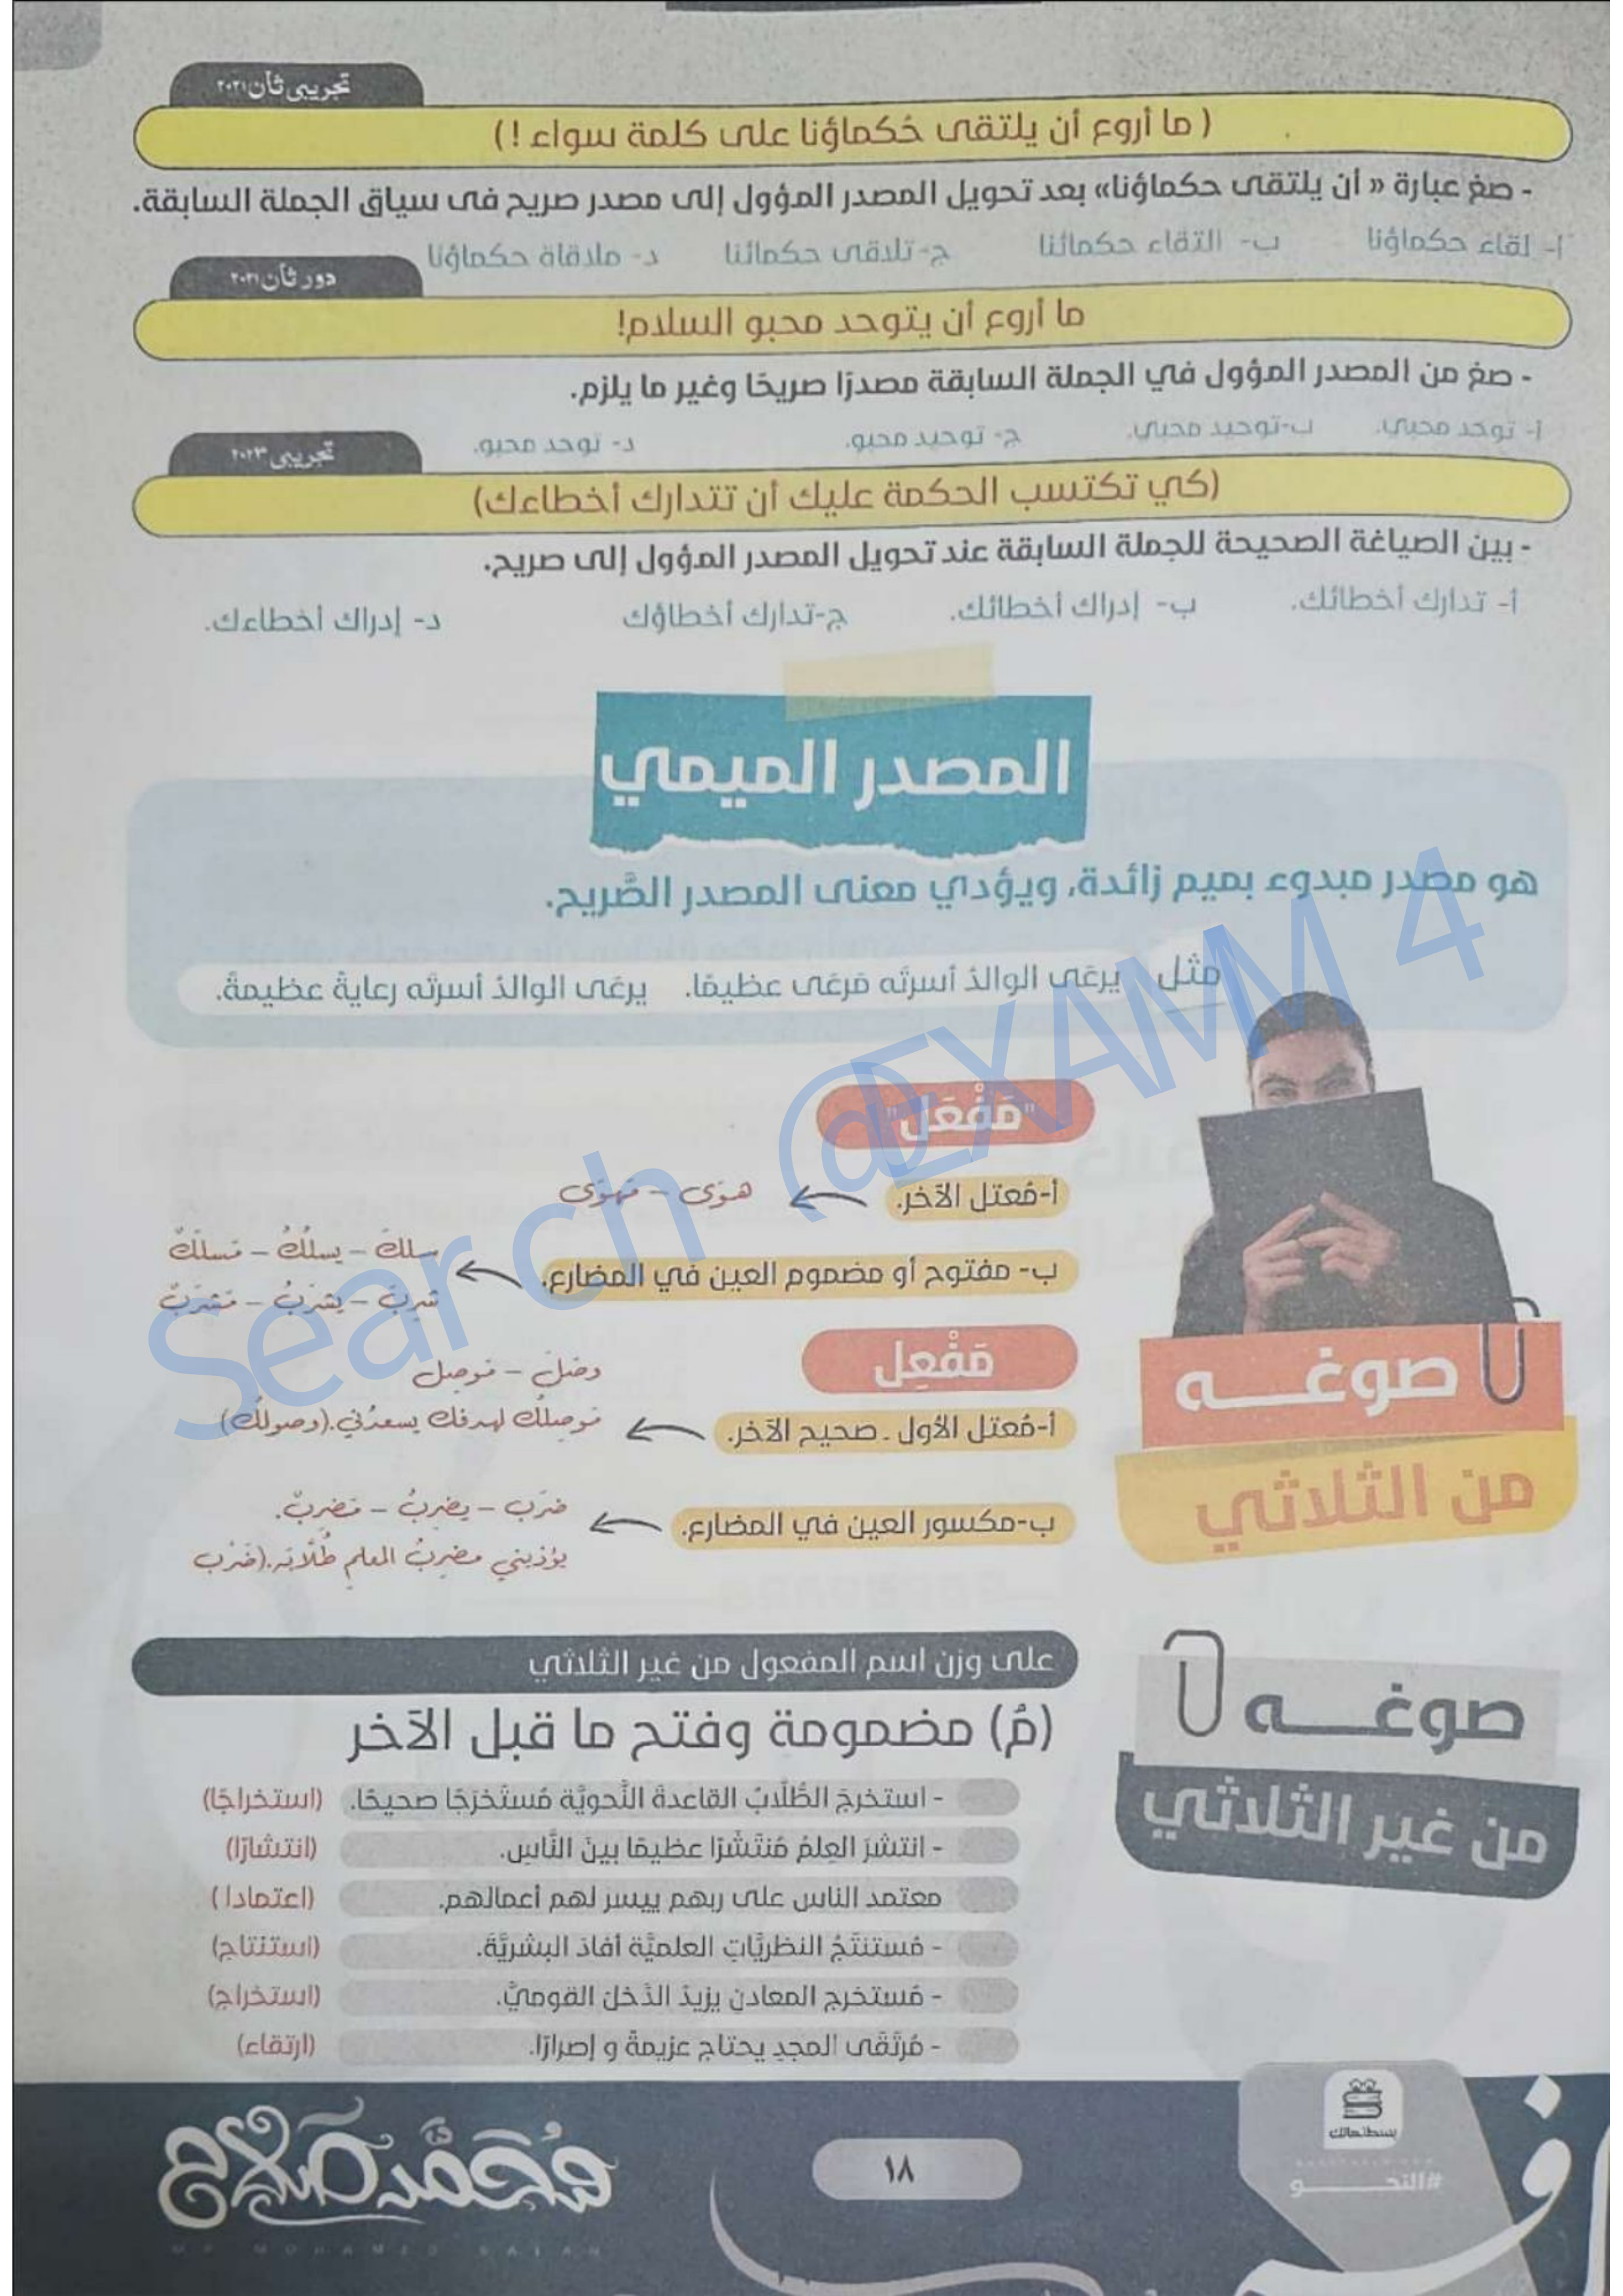 تجريبى ثان ٢٠٢١
( ما أروع أن يلتقى حُكماؤنا على كلمة سواء ! )
- صغ عبارة « أن يلتقى حكماؤنا» بعد تحويل المصدر المؤول إلى مصدر صريح فى سياق الجملة السابقة.
أ- لقاء حكماؤنا ب- التقاء حكمائنا ج- تلاقى حكمائنا د- ملاقاة حكماؤنا
دور ثان ٢٠٢١
ما أروع أن يتوحد محبو السلام!
- صغ من المصدر المؤول في الجملة السابقة مصدرًا صريحًا وغير ما يلزم.
أ- توحد محبي. ب-توحيد محبي. ج- توحيد محبو. د- توحد محبو.
تجريبى ٢٠٢٣
(كي تكتسب الحكمة عليك أن تتدارك أخطاءك)
- بين الصياغة الصحيحة للجملة السابقة عند تحويل المصدر المؤول إلى صريح.
أ- تدارك أخطائك. ب- إدراك أخطائك. ج-تدارك أخطاؤك د- إدراك أخطاءك.
المصدر الميمي
هو مصدر مبدوء بميم زائدة، ويؤدي معنى المصدر الصَّريح.
مثل يرعَى الوالدُ أسرتَه مَرعَى عظيمًا. يرعَى الوالدُ أسرتَه رعايةً عظيمةً.
"مَفْعَل"
أ-مُعتل الآخر. هوَى - مَهوَى
ب- مفتوح أو مضموم العين في المضارع. سلكَ - يسلُكُ - مَسلَكٌ
شربَ - يشرَبُ - مَشرَبٌ
مَفْعِل
وصَلَ - مَوصِل
أ-مُعتل الأول - صحيح الآخر. مَوصِلُك لهدفك يسعدُني.(وصولُك)
ب-مكسور العين في المضارع. ضرَب - يضرِبُ - مَضرِبٌ.
يؤذيني مضرِبُ المعلم طُلَّابَه.(ضَرْب
صوغـــه
من الثلاثي
على وزن اسم المفعول من غير الثلاثي
(مُ) مضمومة وفتح ما قبل الآخر
صوغـــه
من غير الثلاثي
- استخرجَ الطُّلَّابُ القاعدةَ النَّحويَّة مُستَخرَجًا صحيحًا. (استخراجًا)
- انتشرَ العِلمُ مُنتَشَرًا عظيمًا بينَ النَّاسِ. (انتشارًا)
معتمد الناس على ربهم ييسر لهم أعمالهم. (اعتمادا )
- مُستنتَجُ النظريَّاتِ العلميَّة أفادَ البشريَّةَ. (استنتاج)
- مُستخرج المعادنِ يزيدُ الدَّخلَ القوميَّ. (استخراج)
- مُرتَقَى المجدِ يحتاج عزيمةً و إصرارًا. (ارتقاء)
Search @EXAMM 4
محمد صلاح
MR MOHAMED SALAH
١٨
بسطتهالك
#النحـــــــو